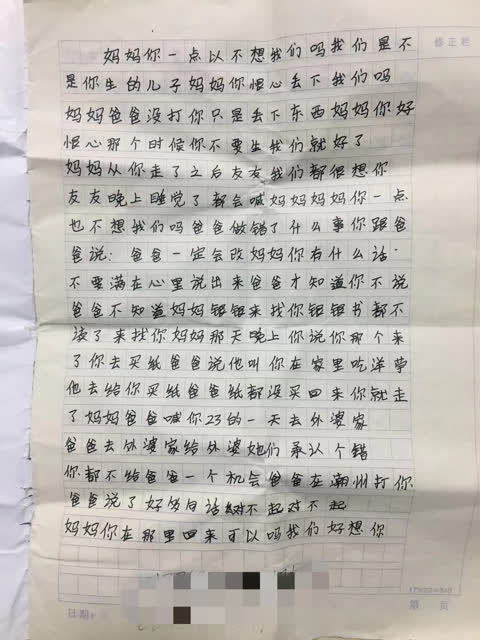 修正栏
妈妈你一点以不想我们吗我们是不
是你生的儿子妈妈你恨心丢下我们吗
妈妈爸爸没打你只是丢下东西妈妈你好
恨心那个时候你不要生我们就好了
妈妈从你走了之后友友我们都很想你
友友晚上睡觉了都会喊妈妈妈妈你一点
也不想我们吗爸爸做错了什么事你跟爸
爸说：爸爸一定会改妈妈你有什么话
不要满在心里说出来爸爸才知道你不说
爸爸不知道妈妈姐姐来找你姐姐书都不
读了来找你妈妈那天晚上你说你那个来
了你去买纸爸爸说他叫你在家里吃洋萝
他去给你买纸爸爸纸都没买回来你就走
了妈妈爸爸喊你23的一天去外婆家
爸爸去外婆家给外婆她们承认个错
你都不给爸爸一个机会爸爸在潮州打你
爸爸说了好多句话对不起对不起
妈妈你在那里回来可以吗我们好想你
日期：
第 页